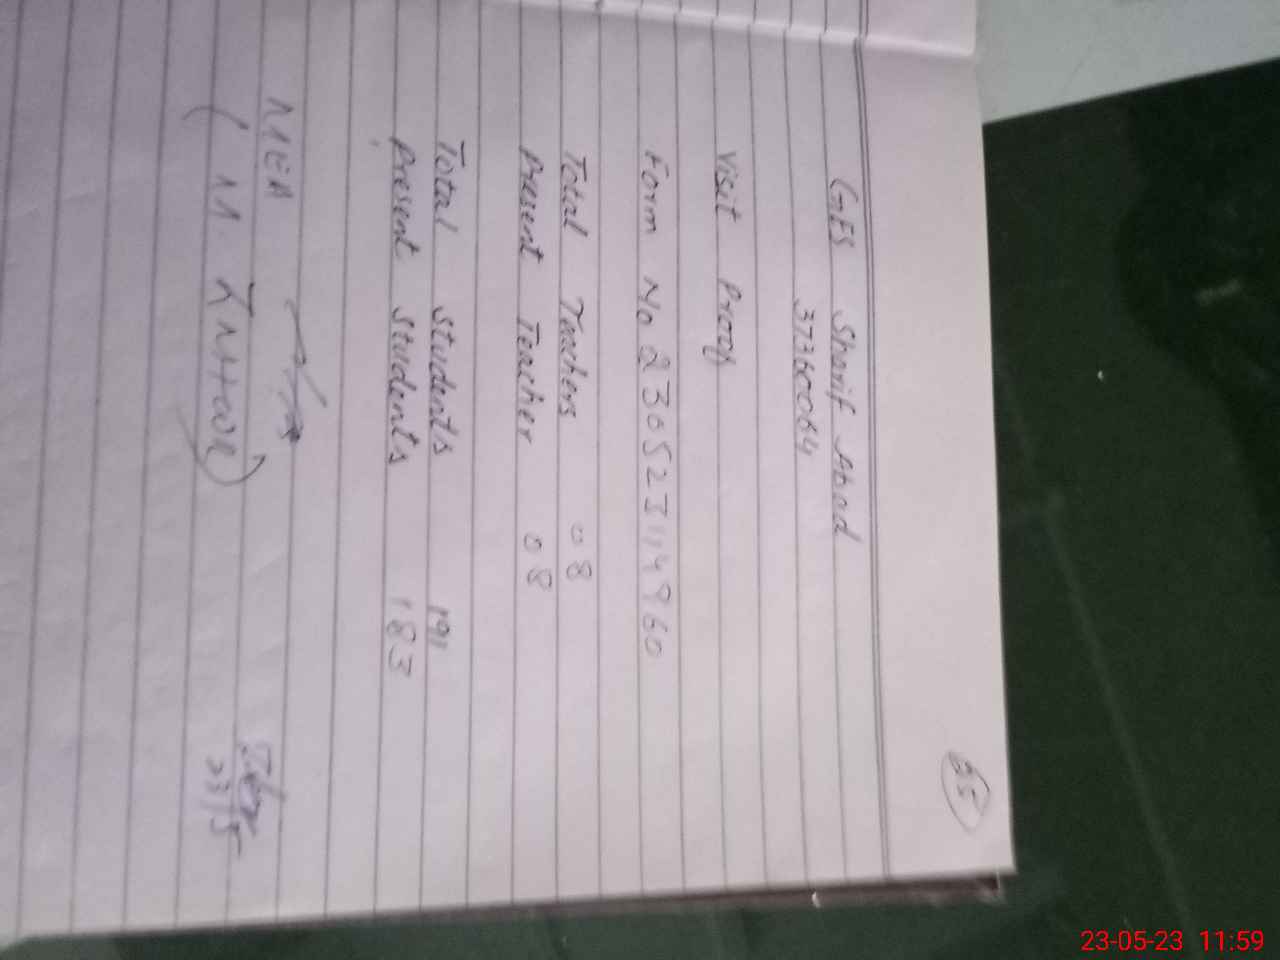 55
GES Sharif Abad
37360064
Visit Proof
Form No 230523114960
Total Teachers 08
Present Teacher 08
Total Students 191
Present Students 183
MEA
23/5
23-05-23 11:59